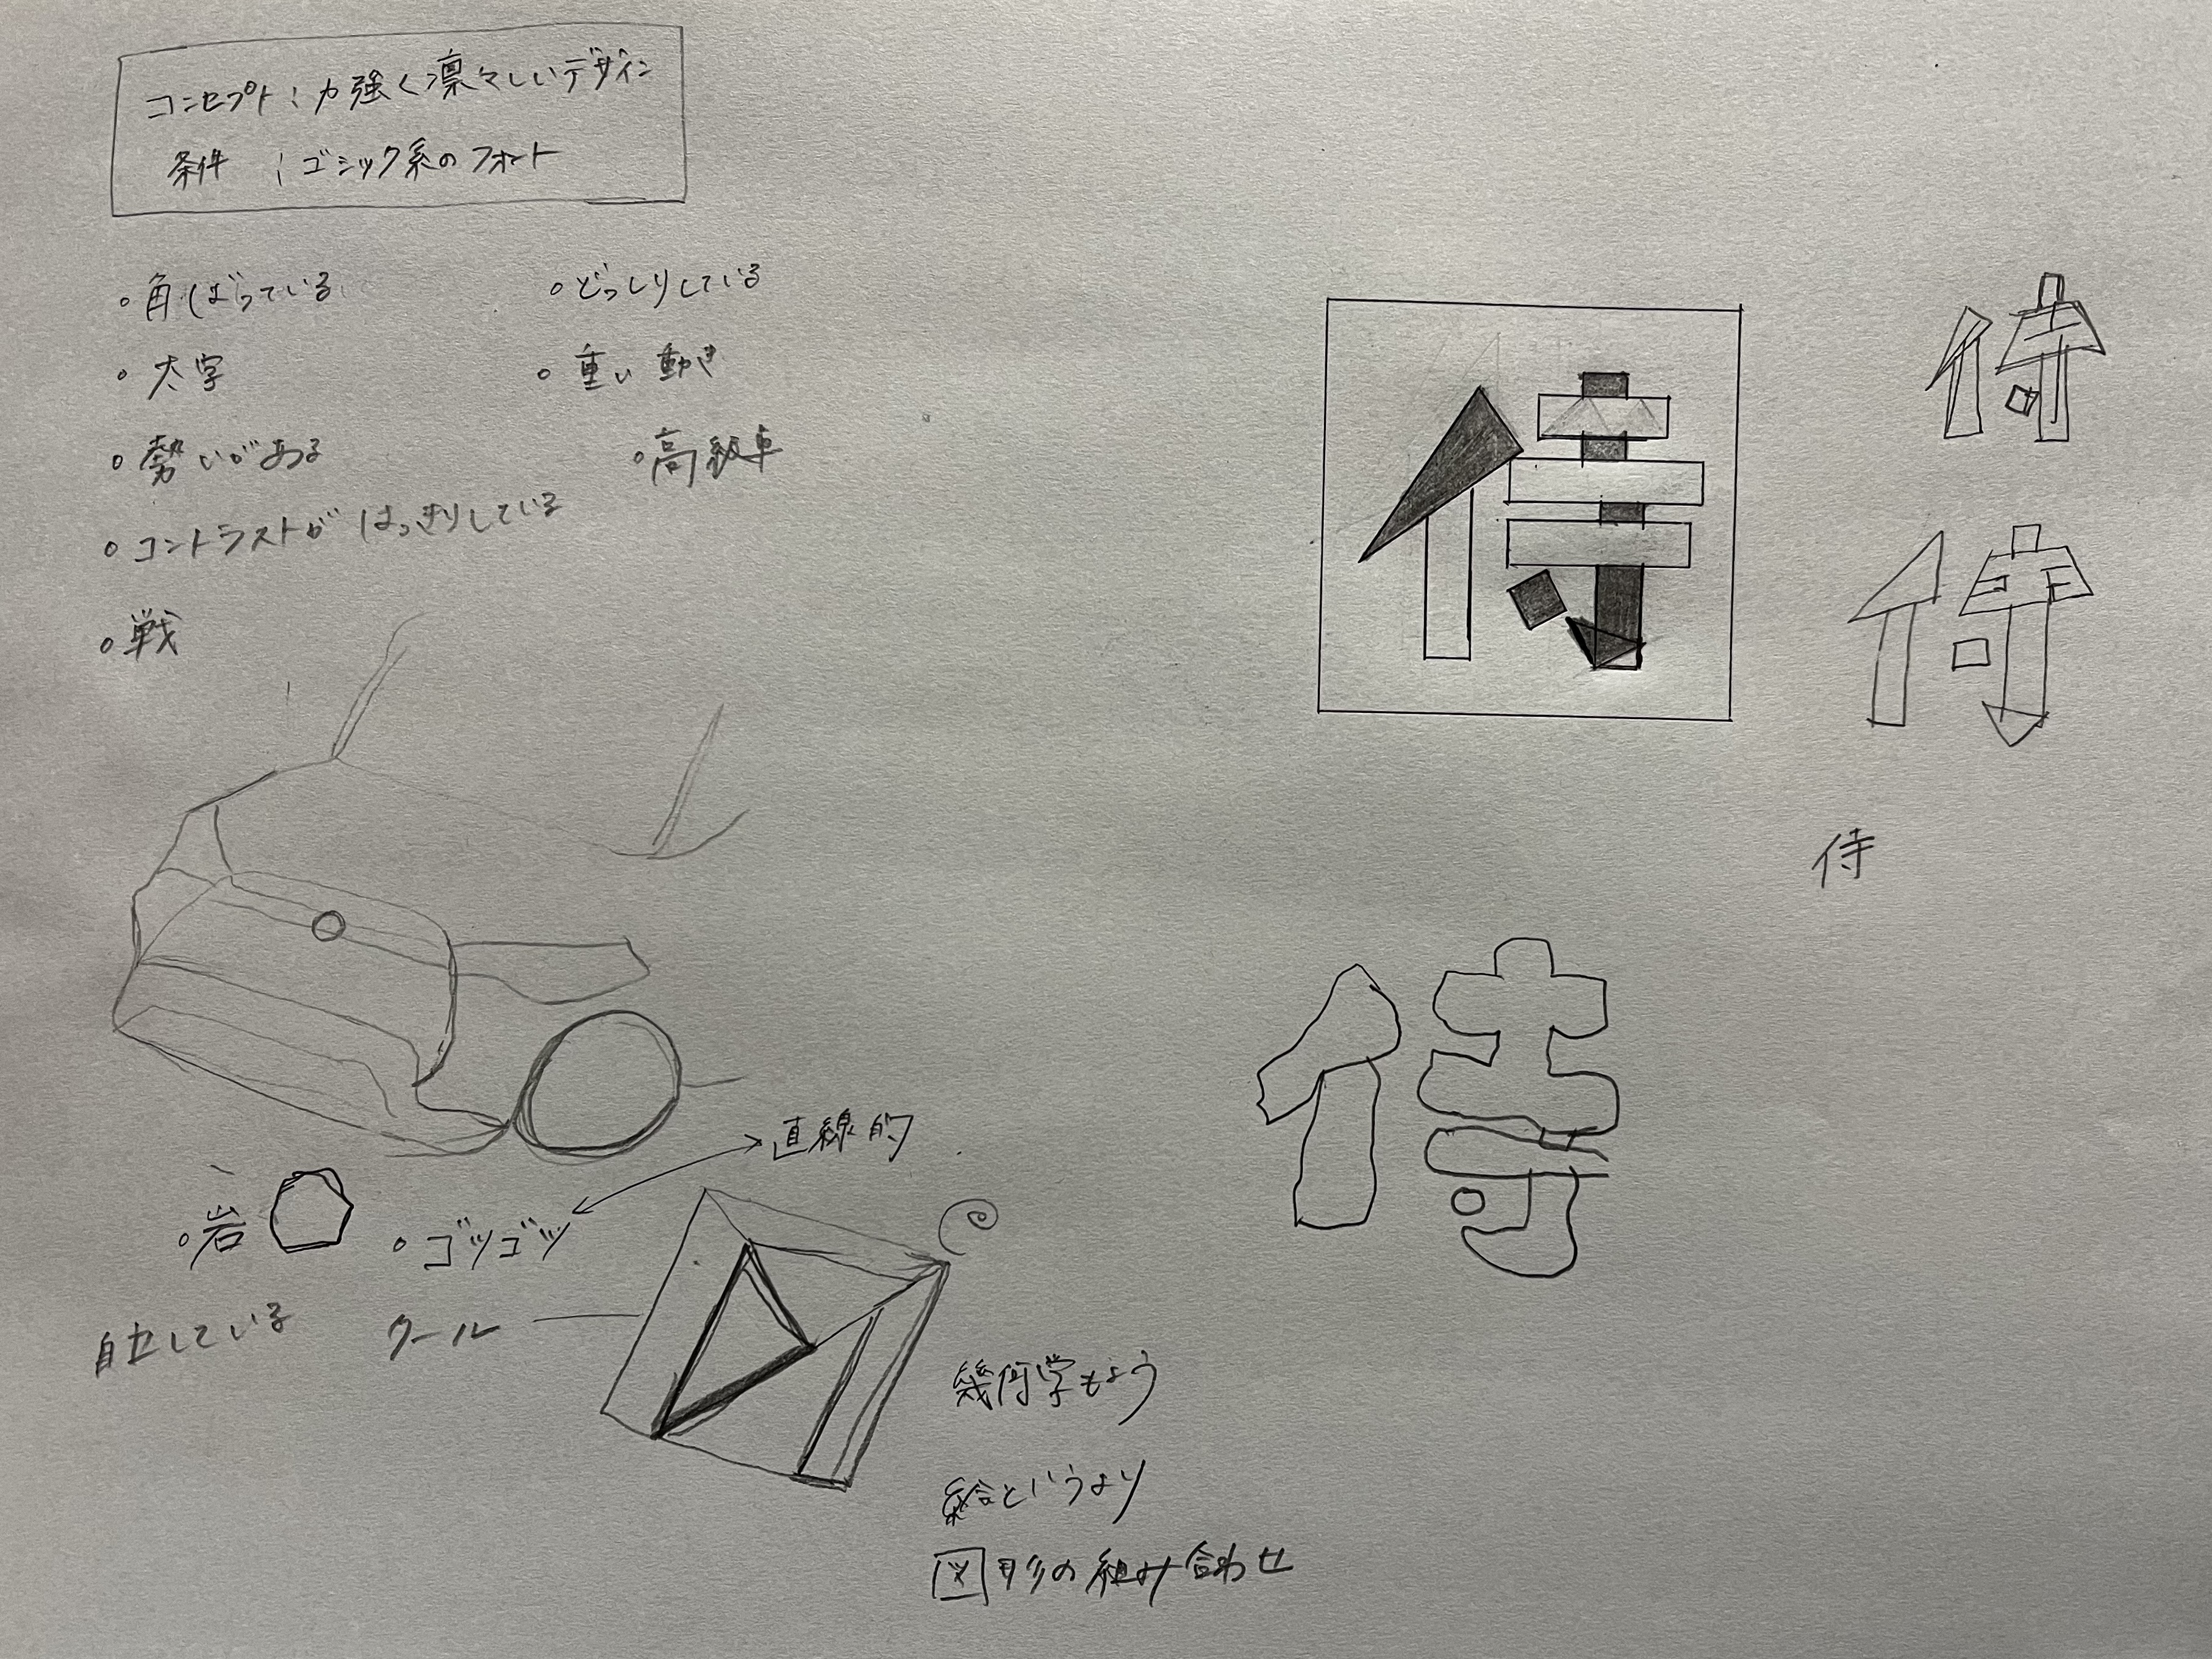 コンセプト：力強く凛々しいデザイン
条件　：ゴシック系のフォント
・角ばっている
・太字
・勢いがある
・コントラストがはっきりしている
・戦
・どっしりしている
・重い動き
・高級車
・岩
・ゴツゴツ
直線的
自立している
クール
幾何学もよう
絵というより
図形の組み合わせ
侍
侍
侍
侍
侍